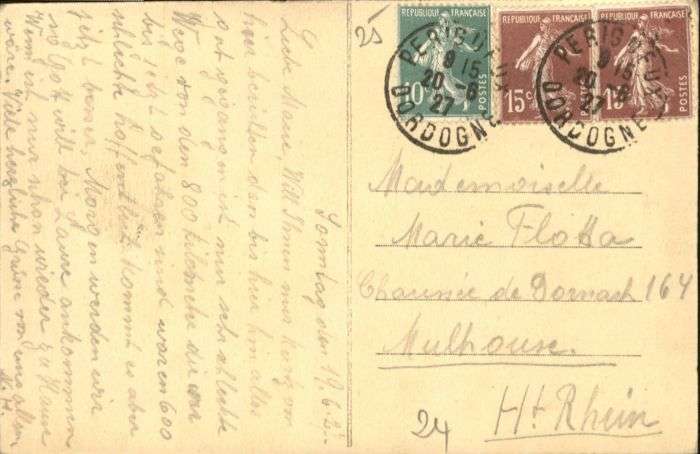 Sonntag den 19.6.27.
Liebe Marie, Will Ihnen nur kurz von
hier berichten den bis hier hin alles
gut gegangen ist nur sehr schlechte
Wege von den 800 Kilometer die wir
bis jetzt gefahren sind waren 600
schlechte hoffentlich kommt es aber
jetzt besser, Morgen werden wir
so Gott will bei Laure ankommen
Wenn ich nur schon wieder zu Hause
wäre. Viele herzliche Grüsse von uns allen
25
REPUBLIQUE FRANÇAISE
REPUBLIQUE FRANÇAISE
REPUBLIQUE FRANÇAISE
10c
15c
15c
POSTES
POSTES
POSTES
PERIGUEUX
9 15
20 - 6
27
DORDOGNE
PERIGUEUX
9 15
20 - 6
27
DORDOGNE
Mademoiselle
Marie Flotta
Chaussée de Dornach 164
Mulhouse.
Ht Rhein
24